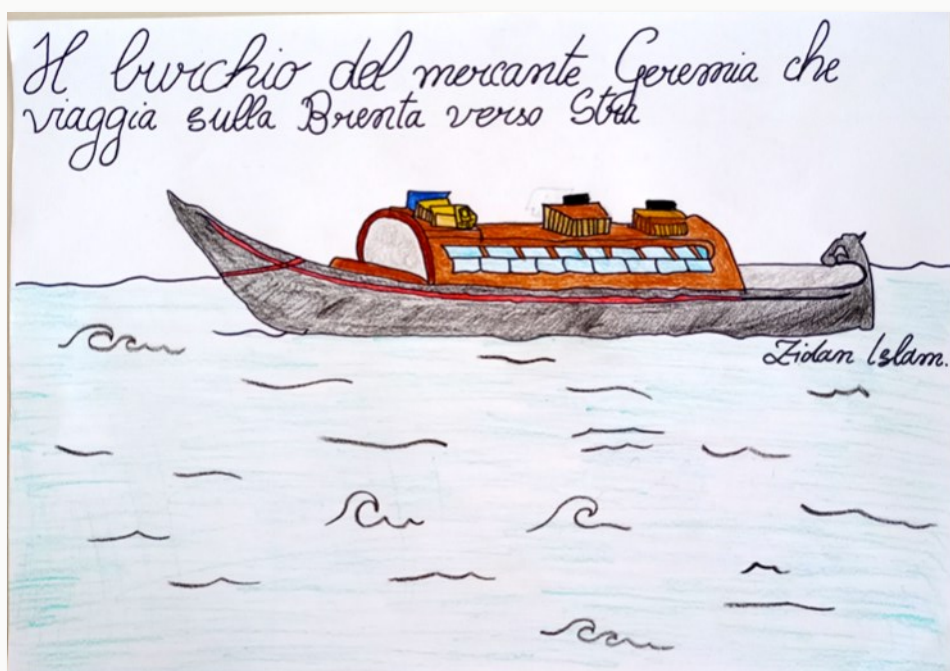 Il burchio del mercante Geremia che
viaggia sulla Brenta verso Stra
Zidan Islam.